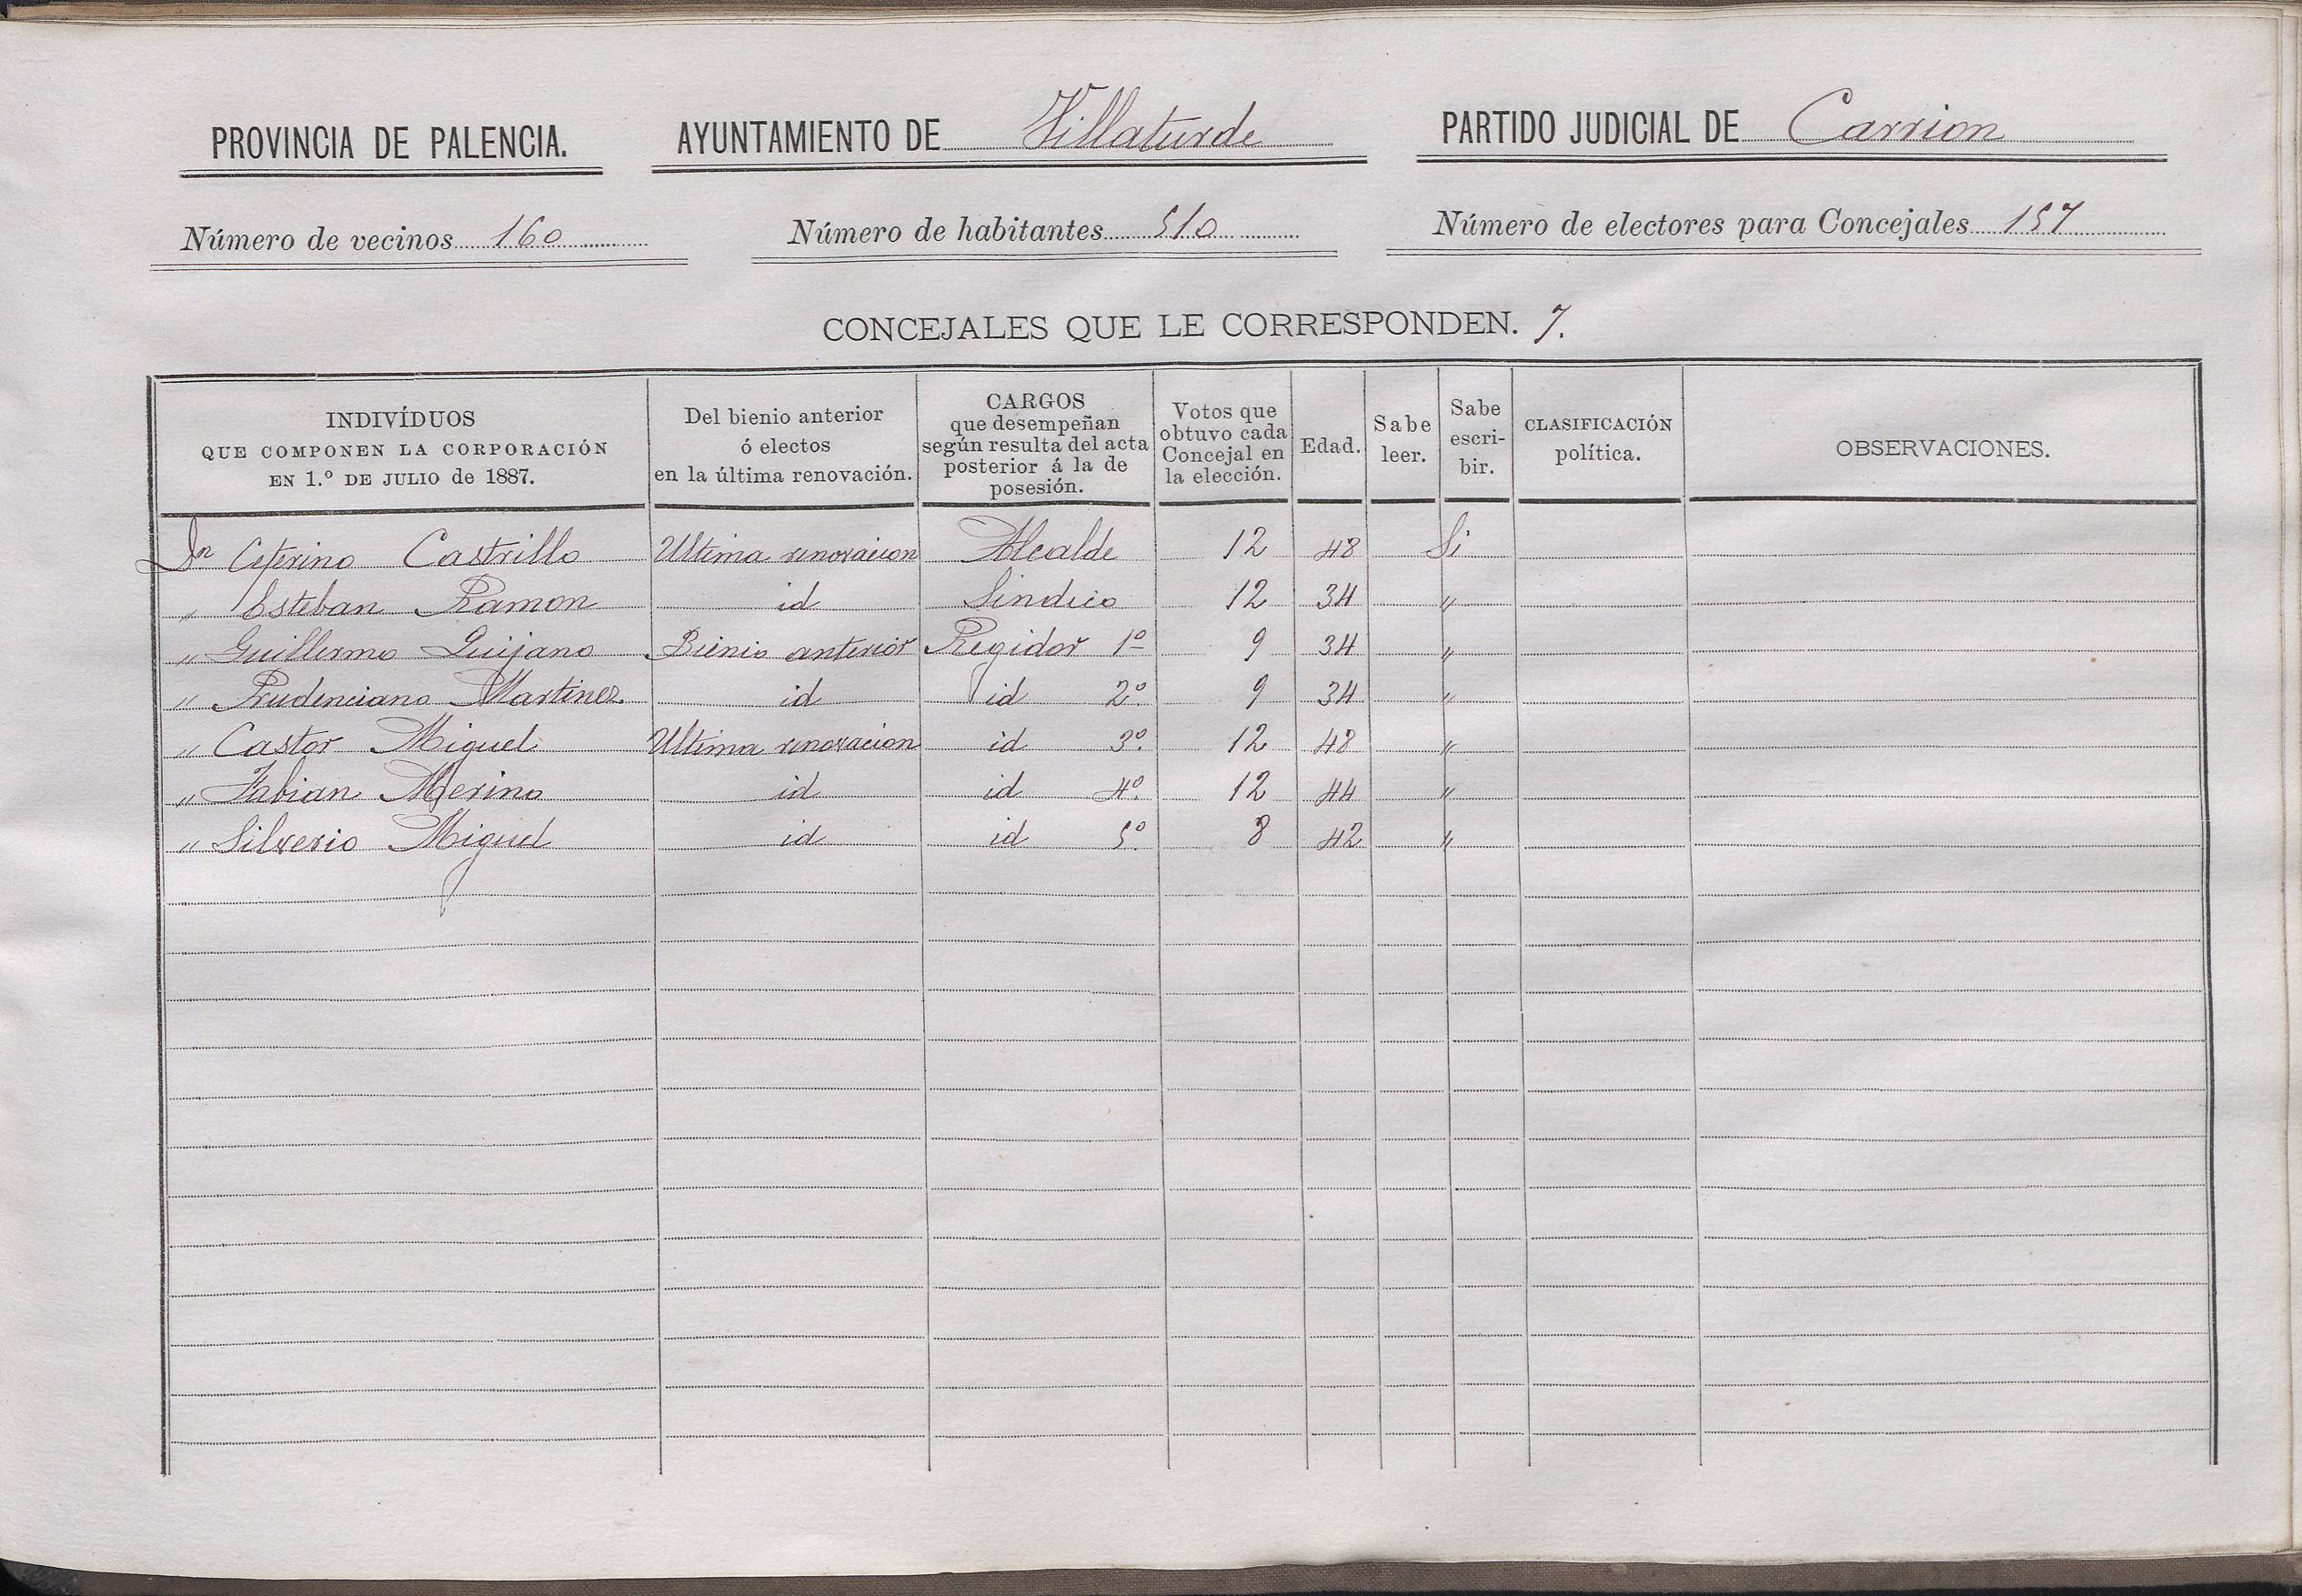 PROVINCIA DE PALENCIA. AYUNTAMIENTO DE Villaturde PARTIDO JUDICIAL DE Carrion
Número de vecinos 160 Número de habitantes 510 Número de electores para Concejales 157
CONCEJALES QUE LE CORRESPONDEN. 7.
INDIVÍDUOS
QUE COMPONEN LA CORPORACIÓN
EN 1.º DE JULIO de 1887.
Del bienio anterior
ó electos
en la última renovación.
CARGOS
que desempeñan
según resulta del acta
posterior á la de
posesión.
Votos que
obtuvo cada
Concejal en
la elección.
Edad.
Sabe
leer.
Sabe
escri-
bir.
CLASIFICACIÓN
política.
OBSERVACIONES.
Dn Ceferino Castrillo Ultima renovacion Alcalde 12 48 Si
" Esteban Ramon id Sindico 12 34 "
" Guillermo Quijano Bienio anterior Regidor 1º 9 34 "
" Prudenciano Martinez id id 2º. 9 34 "
" Castor Miguel Ultima renovacion id 3º. 12 48 "
" Fabian Merino id id 4º. 12 44 "
" Silverio Miguel id id 5º. 8 42 "